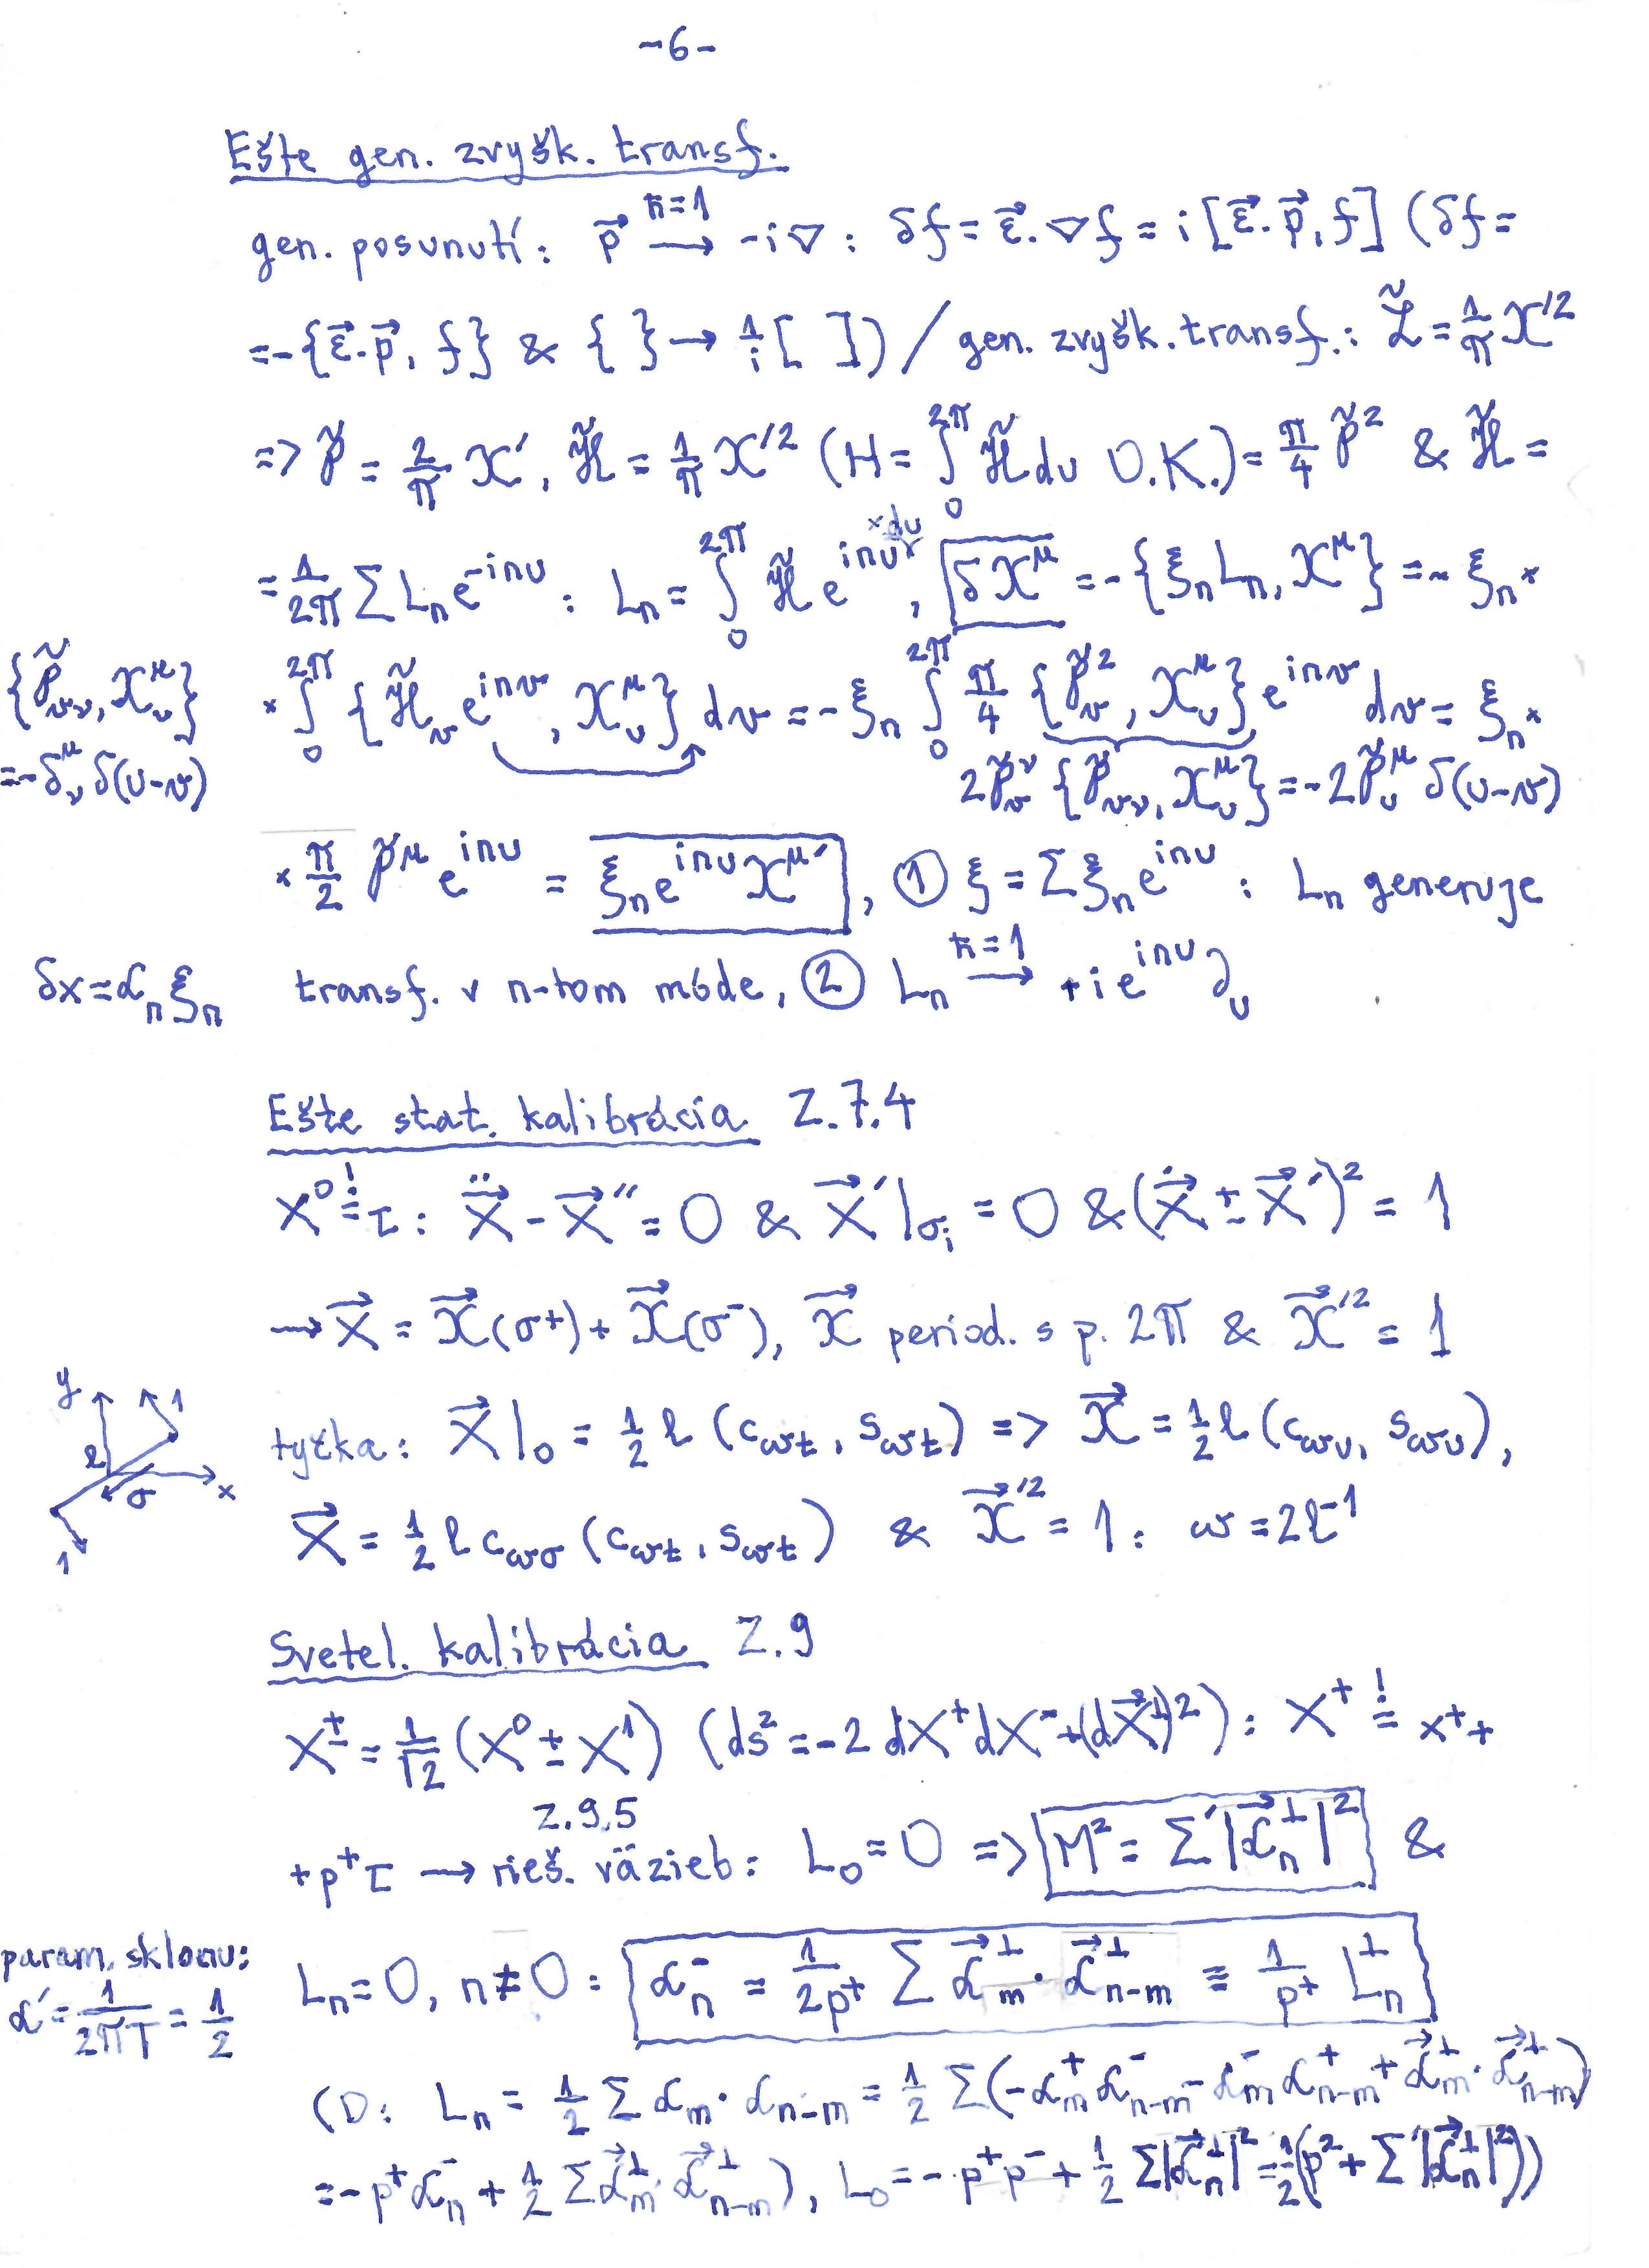 -6-
Ešte gen. zvyšk. transf.
gen. posunutí: p⃗ ⟶(ħ=1) -i∇: δf = ε⃗.∇f = i[ε⃗.p⃗, f] (δf =
= -{ε⃗.p⃗, f} & { } → 1/i [ ]) / gen. zvyšk. transf.: ℒ̃ = 1/π 𝒳'²
=> 𝒫̃ = 2/π 𝒳', ℋ̃ = 1/π 𝒳'² (H = ∫₀^{2π} ℋ̃ du O.K.) = π/4 𝒫̃² & ℋ̃ =
= 1/2π Σ L_n e^{-inu} : L_n = ∫₀^{2π} ℋ̃ e^{inu} × du, δ𝒳^μ = -{ξ_n L_n, 𝒳^μ} = - ξ_n ×
{𝒫̃_{vν}, 𝒳_u^μ}
= -δ_ν^μ δ(u-v)
× ∫₀^{2π} {ℋ̃_v e^{inv}, 𝒳_u^μ} dv = -ξ_n ∫₀^{2π} π/4 {𝒫̃_v², 𝒳_u^μ} e^{inv} dv = ξ_n ×
2𝒫̃_v^ν {𝒫̃_{vν}, 𝒳_u^μ} = -2𝒫̃_u^μ δ(u-v)
× π/2 𝒫̃^μ e^{inu} = ξ_n e^{inu} 𝒳^μ', ① ξ = Σ ξ_n e^{inu} : L_n generuje
δx = α_n ξ_n
transf. v n-tom móde, ② L_n ⟶(ħ=1) +i e^{inu} ∂_u
Ešte stat. kalibrácia Z.7.4
X⁰ =! τ : Ẍ⃗ - X⃗'' = 0 & X⃗'|_{σ_i} = 0 & (Ẋ⃗ ± X⃗')² = 1
→ X⃗ = 𝒳⃗(σ⁺) + 𝒳⃗(σ⁻), 𝒳⃗ period. s p. 2π & 𝒳⃗'² = 1
y 1 ℓ σ x 1
tyčka: X⃗|₀ = ½ ℓ (c_{ωt}, s_{ωt}) => 𝒳⃗ = ½ ℓ (c_{ωu}, s_{ωu}),
X⃗ = ½ ℓ c_{ωσ} (c_{ωt}, s_{ωt}) & 𝒳⃗'² = 1 : ω = 2ℓ⁻¹
Svetel. kalibrácia Z.9
X^± = 1/√2 (X⁰ ± X¹) (ds² = -2 dX⁺dX⁻ + (dX⃗^⊥)²) : X⁺ =! x⁺ +
Z.9.5
+ p⁺τ → rieš. väzieb: L₀ = 0 => M² = Σ'|α⃗_n^⊥|² &
param. sklonu:
α' = 1/2πT = 1/2
L_n = 0, n ≠ 0 : α_n⁻ = 1/2p⁺ Σ α⃗_m^⊥ · α⃗_{n-m}^⊥ ≡ 1/p⁺ L_n^⊥
(D: L_n = ½ Σ α_m · α_{n-m} = ½ Σ(-α_m⁺ α_{n-m}⁻ - α_m⁻ α_{n-m}⁺ + α⃗_m^⊥ · α⃗_{n-m}^⊥)
= -p⁺α_n⁻ + ½ Σ α⃗_m^⊥ · α⃗_{n-m}^⊥), L₀ = -p⁺p⁻ + ½ Σ|α⃗_n^⊥|² = ½(p² + Σ'|α⃗_n^⊥|²))